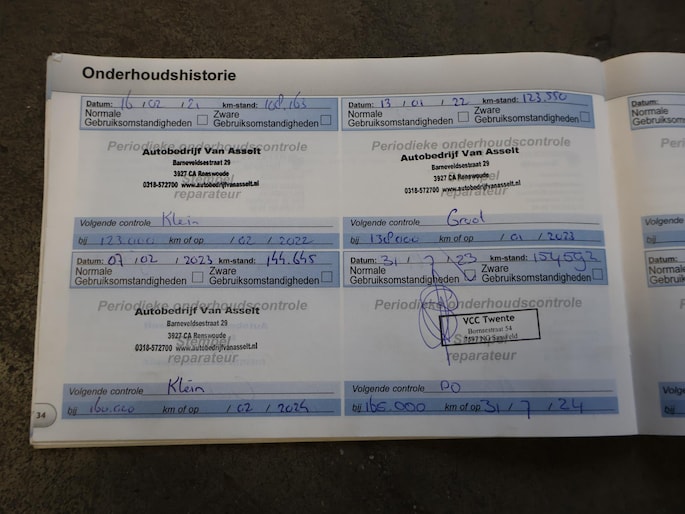 Onderhoudshistorie
Datum: 16 / 02 / 21 km-stand: 108.163
Normale Gebruiksomstandigheden
Zware Gebruiksomstandigheden
Periodieke onderhoudscontrole
Autobedrijf Van Asselt
Barneveldsestraat 29
3927 CA Renswoude
Stempel
0318-572700 www.autobedrijfvanasselt.nl
reparateur
Volgende controle Klein
bij 123.000 km of op / 02 / 2022
Datum: 13 / 01 / 22 km-stand: 123.550
Normale Gebruiksomstandigheden
Zware Gebruiksomstandigheden
Periodieke onderhoudscontrole
Autobedrijf Van Asselt
Barneveldsestraat 29
3927 CA Renswoude
Stempel
0318-572700 www.autobedrijfvanasselt.nl
reparateur
Volgende controle Groot
bij 138.000 km of op / 01 / 2023
Datum: 07 / 02 / 2023 km-stand: 144.645
Normale Gebruiksomstandigheden
Zware Gebruiksomstandigheden
Periodieke onderhoudscontrole
Autobedrijf Van Asselt
Barneveldsestraat 29
3927 CA Renswoude
Stempel
0318-572700 www.autobedrijfvanasselt.nl
reparateur
Volgende controle Klein
bij 160.000 km of op / 02 / 2024
Datum: 31 / 7 / 23 km-stand: 154592
Normale Gebruiksomstandigheden
Zware Gebruiksomstandigheden
Periodieke onderhoudscontrole
VCC Twente
Bornsestraat 54
reparateur
Volgende controle PO
bij 165.000 km of op 31 / 7 / 24
34
Datum:
Normale
Gebruiksomst
Volgende
bij
Datum:
Normale
Gebruiksom
Volgende
bij